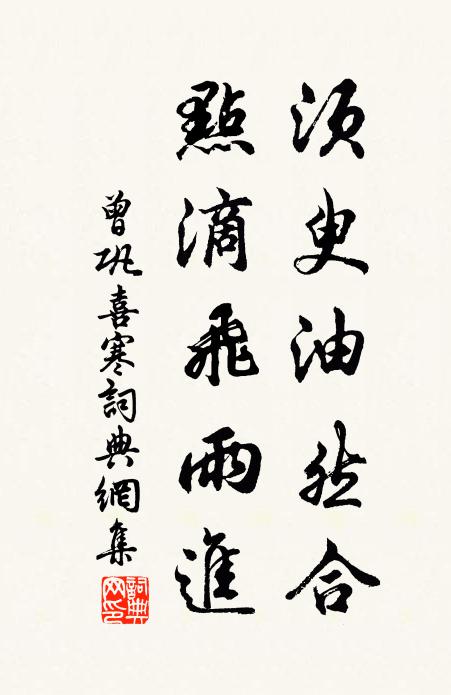 須臾油然合
點滴飛雨進
曾巩喜寒詞典網集
詞典
网印